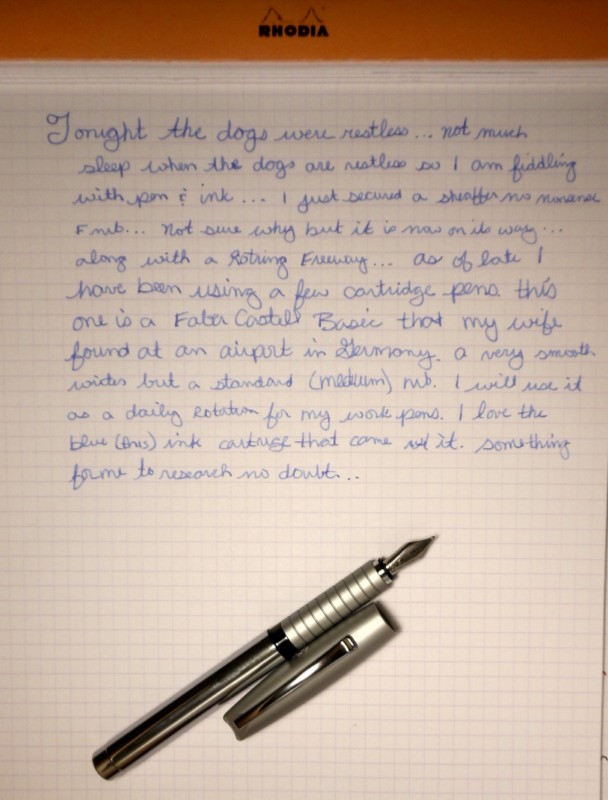 RHODIA
Tonight the dogs were restless... not much
sleep when the dogs are restless so I am fiddling
with pen & ink... I just secured a sheaffer no nonsense
F nib... Not sure why but it is now on its way...
along with a Rotring Freeway... as of late I
have been using a few cartridge pens. this
one is a Faber Castell Basic that my wife
found at an airport in Germany. a very smooth
writer but a standard (medium) nib. I will use it
as a daily rotation for my work pens. I love the
blue (this) ink cartrige that came w/ it. something
for me to research no doubt...